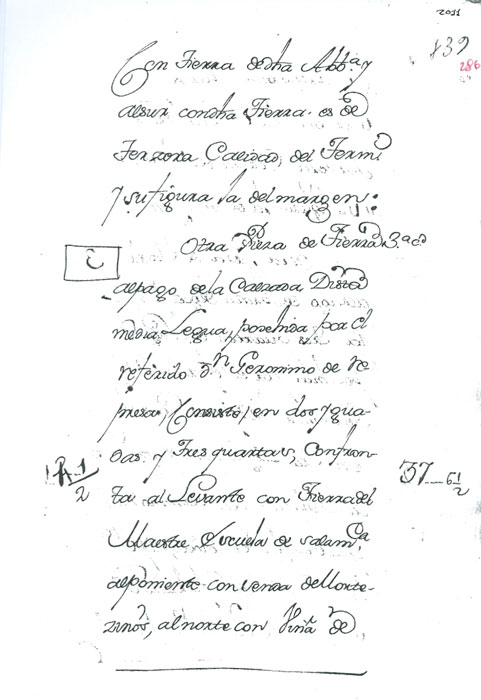 2011
139
286
Con Tierra de dha Abb.ª y
al sur con dha Tierra. es de
Terzera Calidad, del Termi
y su figura la del margen:
Otra Pieza de Tierra 3.ª
al pago de la Calzada Dista
media Legua, posehida por el
referido Dn Geronimo de
presa, Consiste, en dos
y Tres quartas, Confron-
37 6 1/2
1/2
ta al Levante con Tierra del
Maestre Escuela de Salam.ca
al poniente con de Monte-
zinos, al norte con Viña de